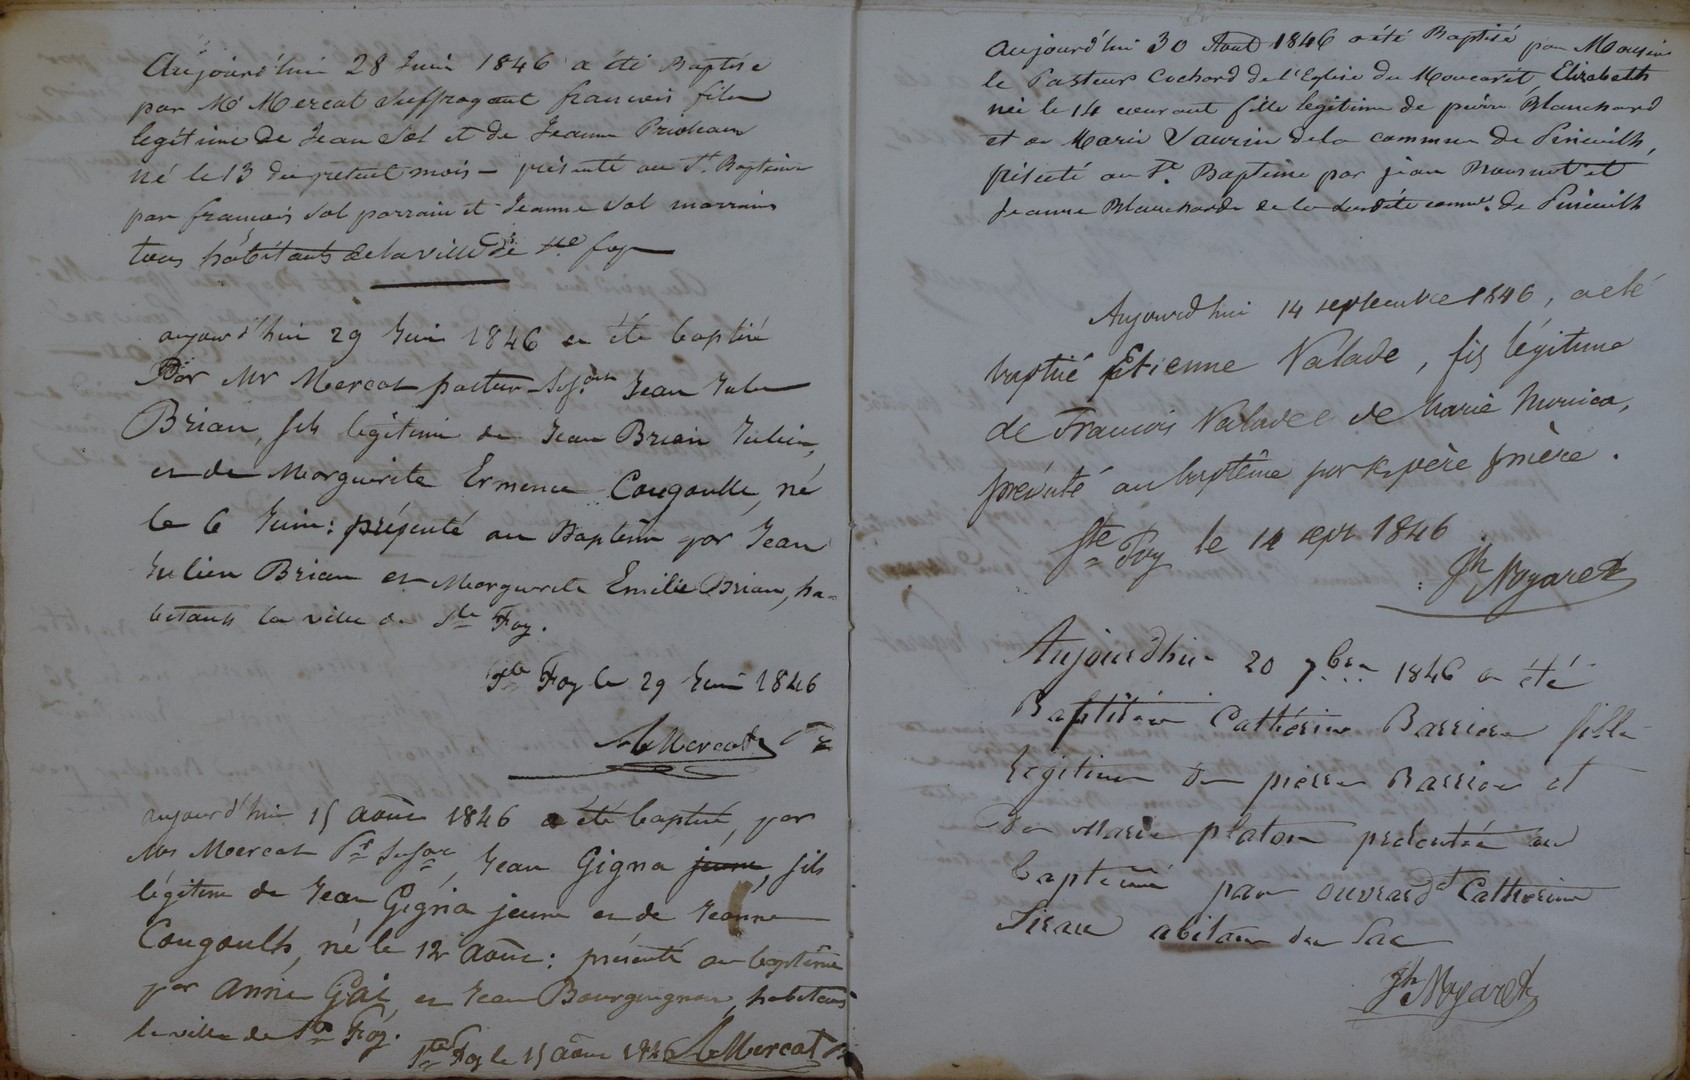 Aujourd'hui 28 Juin 1846 a été Baptisé
par Mr Mercat Suffragant francois fils
legitime de Jean Sol et de Jeanne
né le 13 du présent mois — présenté au St. Baptème
par francois Sol parrain et Jeanne Sol marraine
tous habitants de la ville de Ste foy
aujourd'hui 29 Juin 1846 a été baptisé
Par Mr Mercat pasteur Jean Jules
Brian, fils légitime de Jean Brian Julien,
et de Marguerite Ermence Cougoulle, né
le 6 Juin: présenté au Baptême par Jean
Julien Brian et Marguerite Emilie Brian, ha-
bitants la ville de Ste Foy.
Ste Foy le 29 Juin 1846
Mercat Pr
aujourd'hui 15 août 1846 a été baptisé, par
Mr Mercat Pr Sufr, Jean Gigna jeune, fils
légitime de Jean Gigna jeune et de Jeanne
Cougoulh, né le 12 août: présenté au baptême
par Anne Gai, et Jean Bourguignon, habitans
la ville de Ste Foy.
Ste Foy le 15 août 1846 Mercat Pr
Aujourd'hui 30 Aout 1846 a été Baptisé par Monsieur
le Pasteur Cochard de l'Eglise du Moucarit Elizabeth
née le 14 courant fille legitime de pierre Blanchard
et de Marie Saurin de la commune de Pineuilh,
présenté au St. Baptème par jean et
Jeanne Blancharde de la susdite comme. de Pineuilh
Aujourdhui 14 septembre 1846, a été
baptisé Etienne Valade, fils légitime
de Francois Valade et de Marie
présenté au baptême par ses père & mère.
Ste Foy le 14 sepr 1846
Jh Nogaret
Aujourdhui 20 7bre 1846 a été
Baptisée Cathérine Barriere fille
legitime de pierre Barriere et
De Marie platon presentée au
baptême par ouvrard et Catherine
abitans du Sac
Jh Nogaret